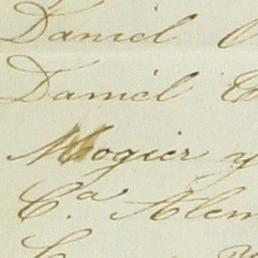 Daniel
Daniel
Mogier y
C.ª Alem